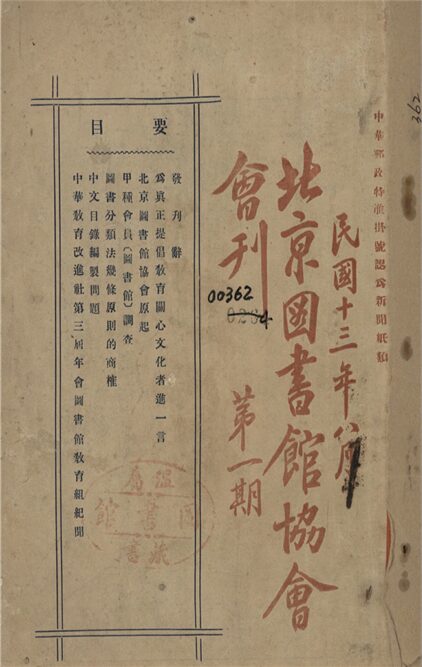 中華郵政特准掛號認爲新聞紙類
民國十三年八月
北京圖書館協會
會刊
第一期
00362
362
要目
發刊辭
爲眞正提倡敎育關心文化者進一言
北京圖書館協會原起
甲種會員(圖書館)調查
圖書分類法幾條原則的商榷
中文目錄編製問題
中華敎育改進社第三屆年會圖書館敎育組紀聞
圖書館
藏書